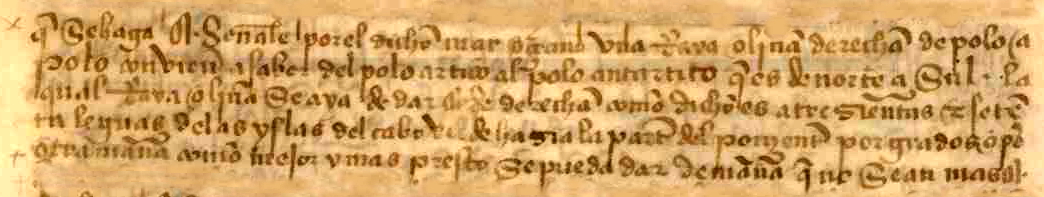 q̃ se haga e señale por el dicho mar oçeano vna rraya o liña derecha de polo a
polo convien a saber del polo artico al polo antartico q̃ es de norte a sul la
qual rraya o liña se aya de dar e de derecha como dicho es a trezientas e seten
ta leguas delas yslas del cabo verde hazia la parte del poniente por grados o por
otra manera como mejor y mas presto se pueda dar de manera q̃ no sean mas